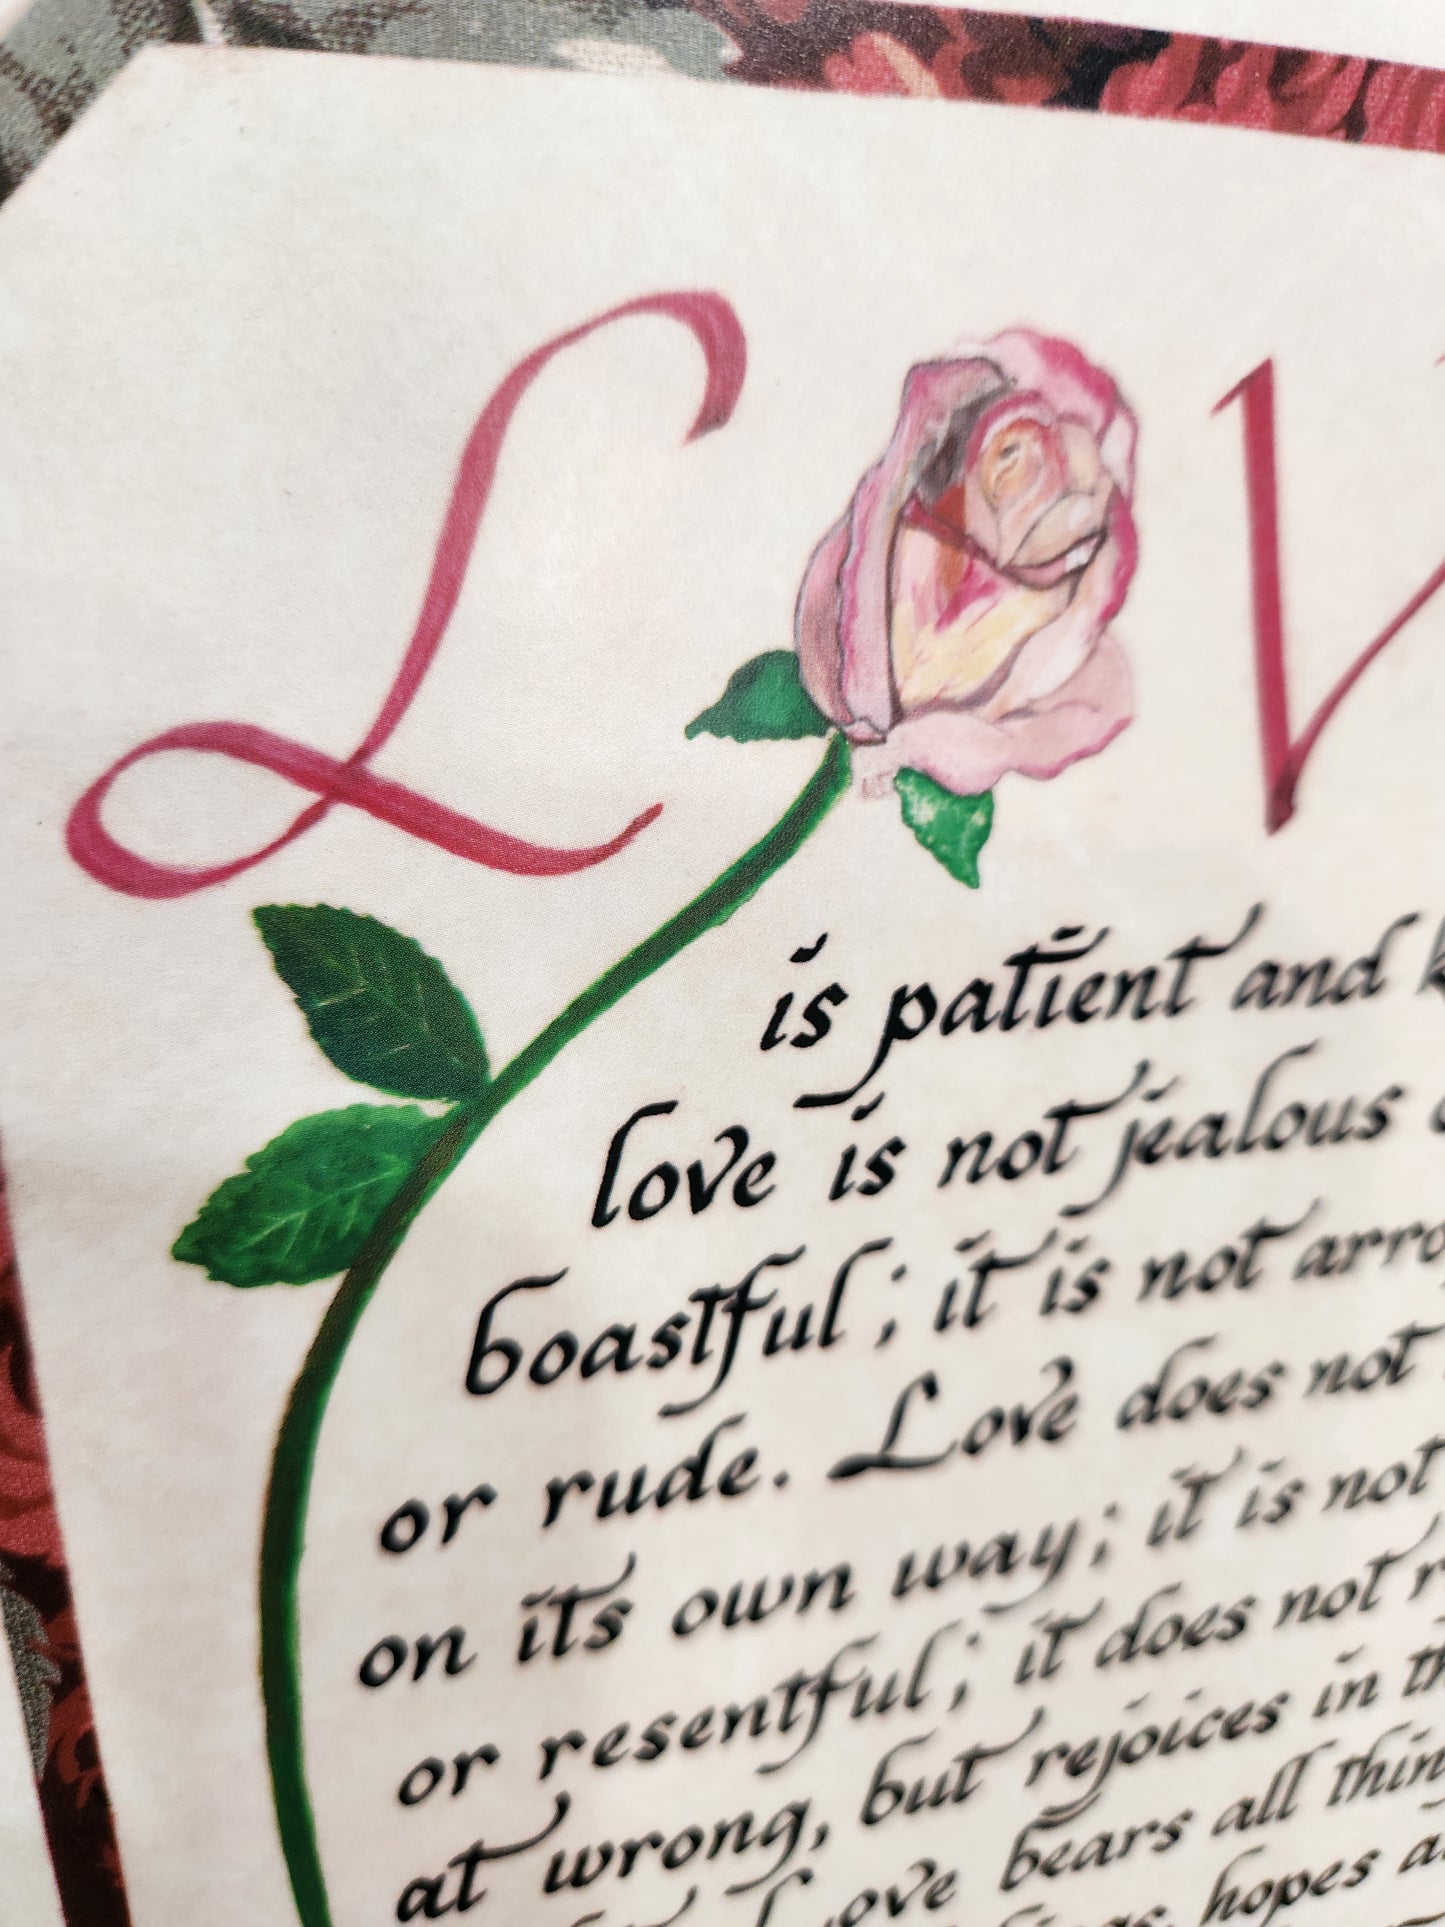 L V
is patient and
love is not jealous
boastful; it is not
or rude. Love does not
on its own way; it is not
or resentful; it does not
at wrong, but rejoices in
Love bears all
hopes